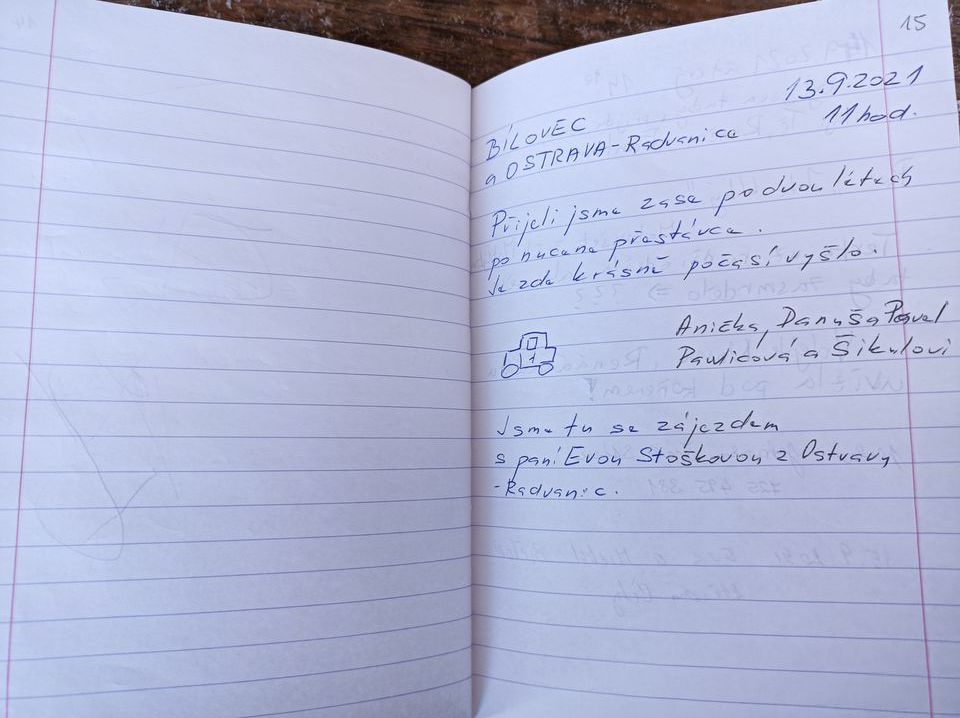 15
13.9.2021
BÍLOVEC 11hod.
a OSTRAVA-Radvanice
Přijeli jsme zase po dvou létech
ponucene přestávce.
Je zde krásně počasí vyšlo.
Anička, Danuša Pavel
Pavlicová a Šikulovi
1
Jsme tu se zájezdem
s paní Evou Stoškovou z Ostravy
-Radvanic.